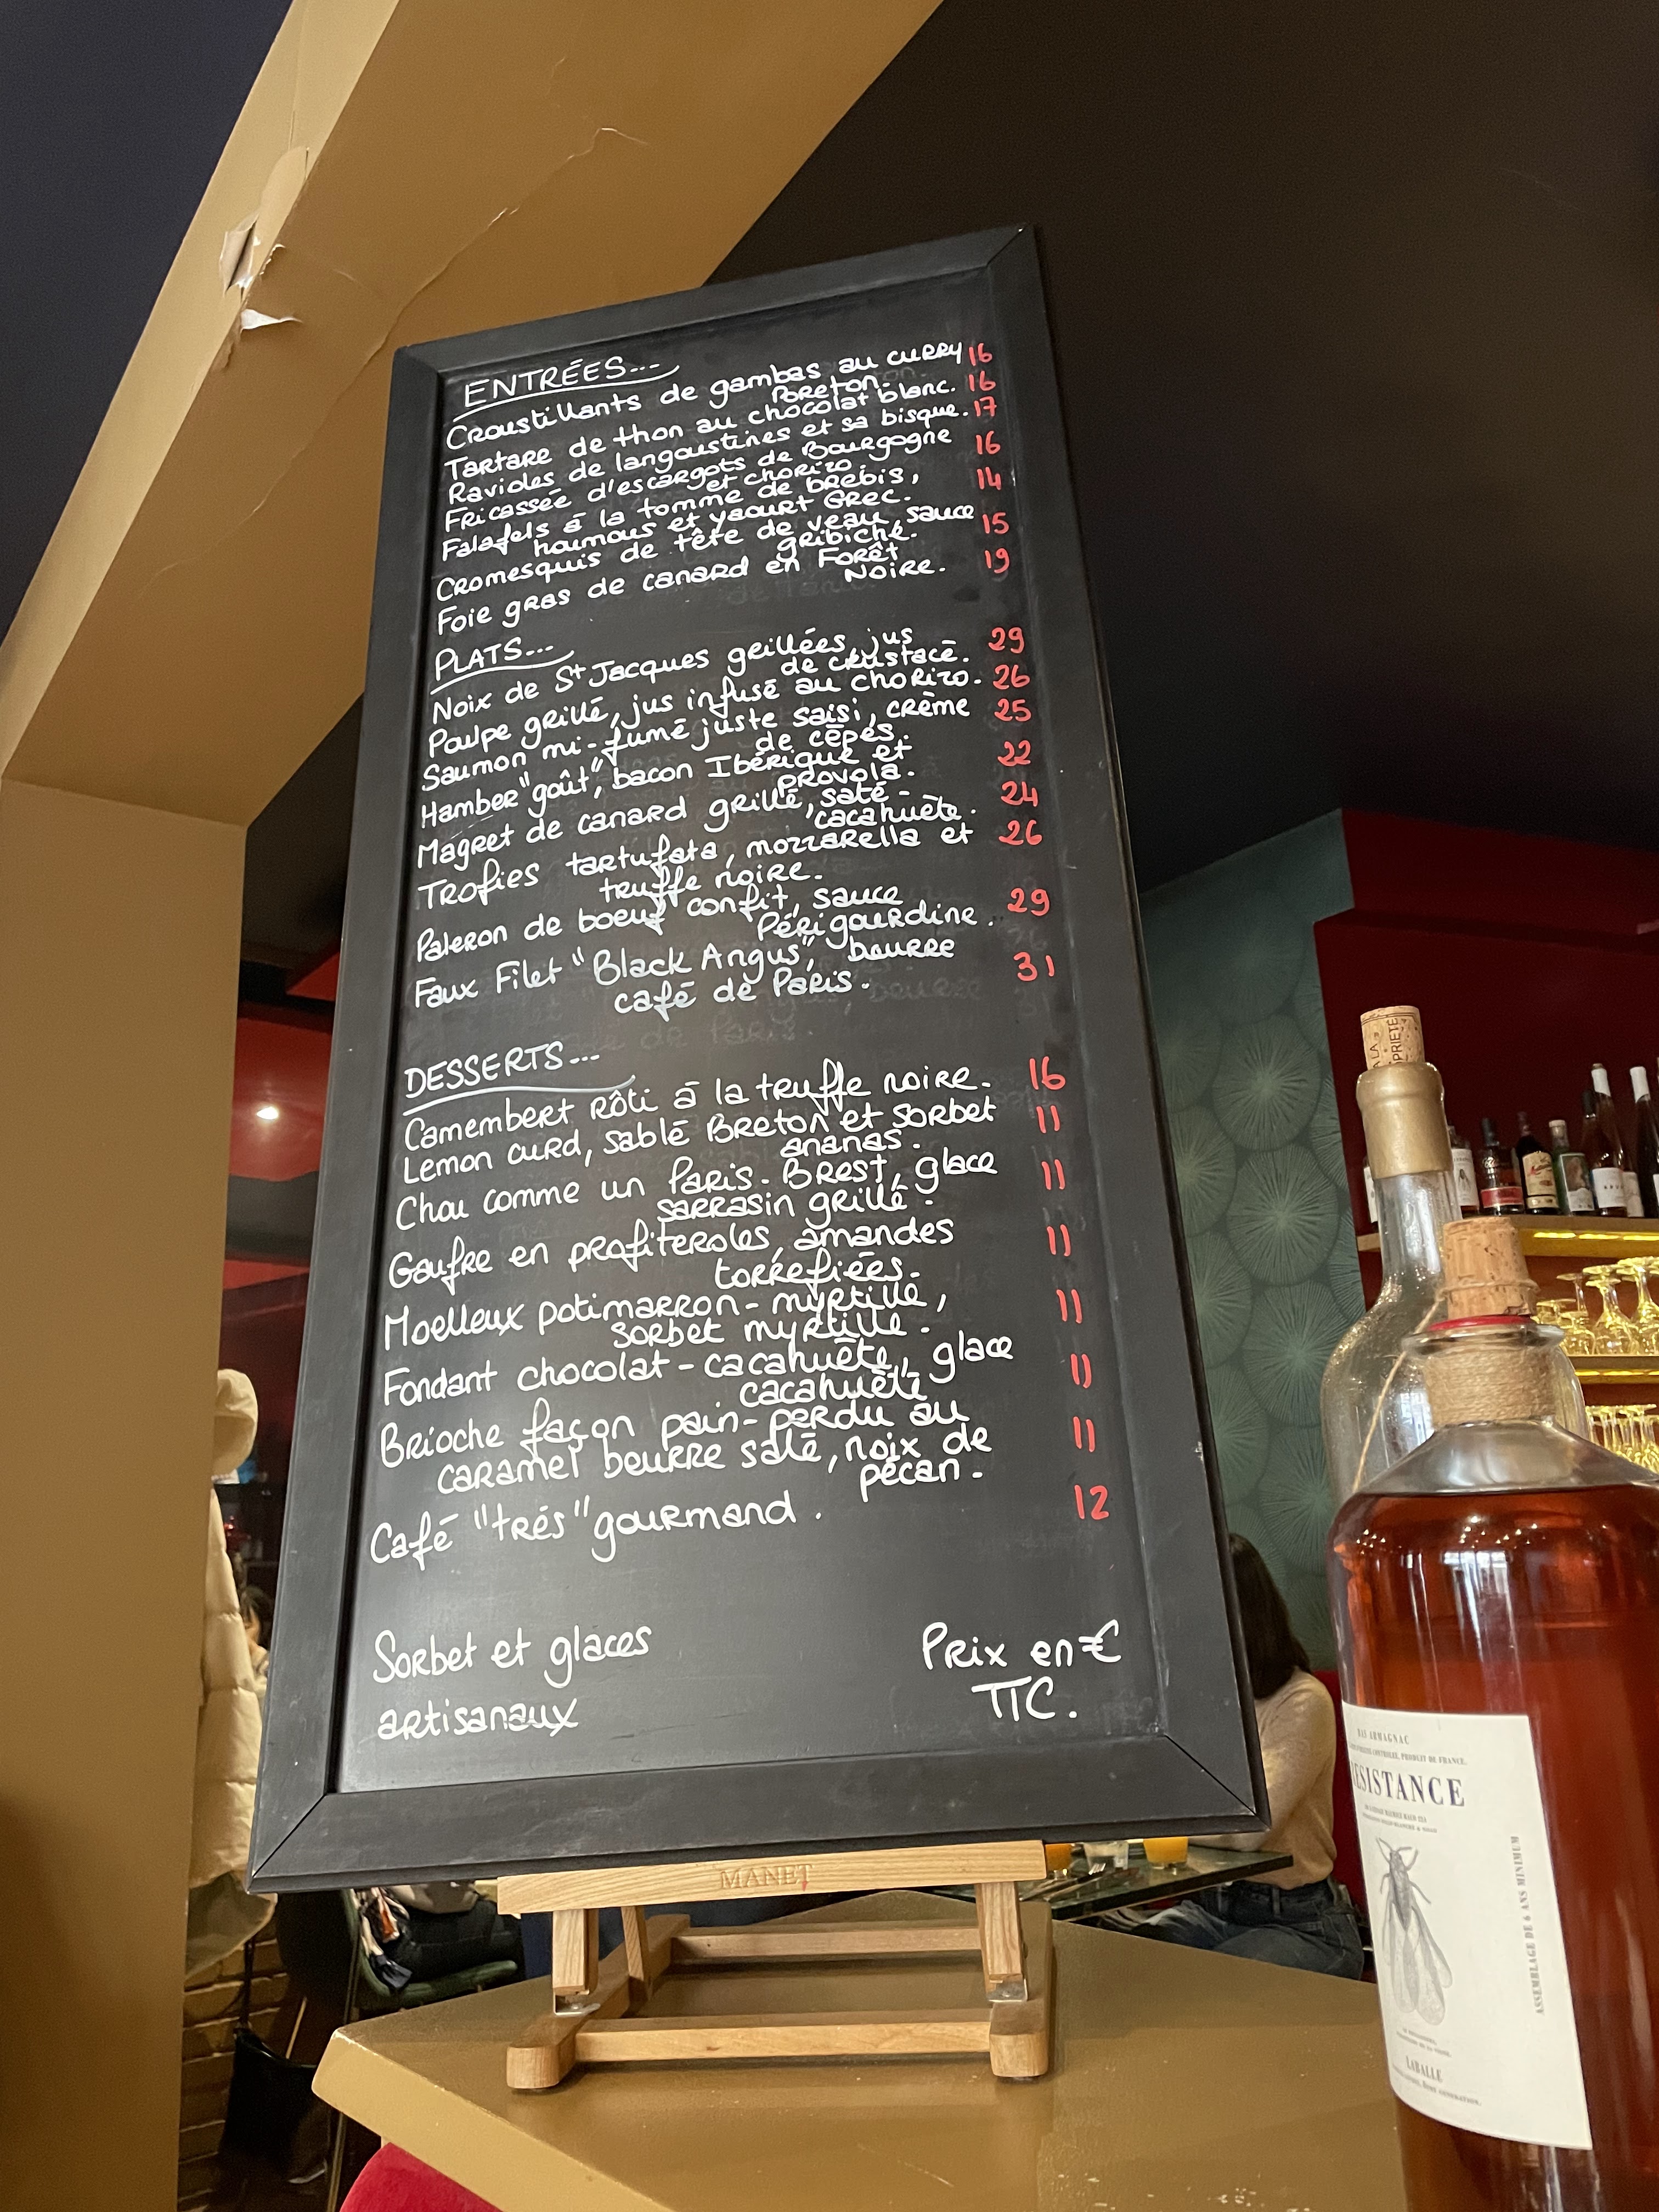 ENTRÉES...
Croustillants de gambas au curry 16
Breton.
Tartare de thon au chocolat blanc. 16
Ravioles de langoustines et sa bisque. 17
Fricassée d'escargots de Bourgogne 16
et chorizo.
Falafels à la tomme de brebis, 14
houmous et yaourt Grec.
Cromesquis de tête de veau, sauce 15
gribiche.
Foie gras de canard en Forêt 19
Noire.
PLATS...
Noix de St Jacques grillées, jus 29
de crustacé.
Poulpe grillé, jus infusé au chorizo. 26
Saumon mi-fumé juste saisi, crème 25
de cèpes.
Hamber "goût", bacon Ibérique et 22
provola.
Magret de canard grillé, saté- 24
cacahuète.
Trofies tartufata, mozzarella et 26
truffe noire.
Paleron de boeuf confit, sauce 29
Périgourdine.
Faux Filet "Black Angus", beurre 31
café de Paris.
DESSERTS...
Camembert rôti à la truffe noire. 16
Lemon curd, sablé Breton et sorbet 11
ananas.
Chou comme un Paris-Brest, glace 11
sarrasin grillé.
Gaufre en profiteroles, amandes 11
torréfiées.
Moelleux potimarron-myrtille, 11
sorbet myrtille.
Fondant chocolat-cacahuète, glace 11
cacahuète
Brioche façon pain-perdu au 11
caramel beurre salé, noix de
pécan.
Café "très" gourmand. 12
Sorbet et glaces
artisanaux
Prix en €
TTC.
MANET
A LA
PRIETE
BAS ARMAGNAC
PRODUIT DE FRANCE.
ESISTANCE
ASSEMBLAGE DE 6 ANS MINIMUM
LABALLE